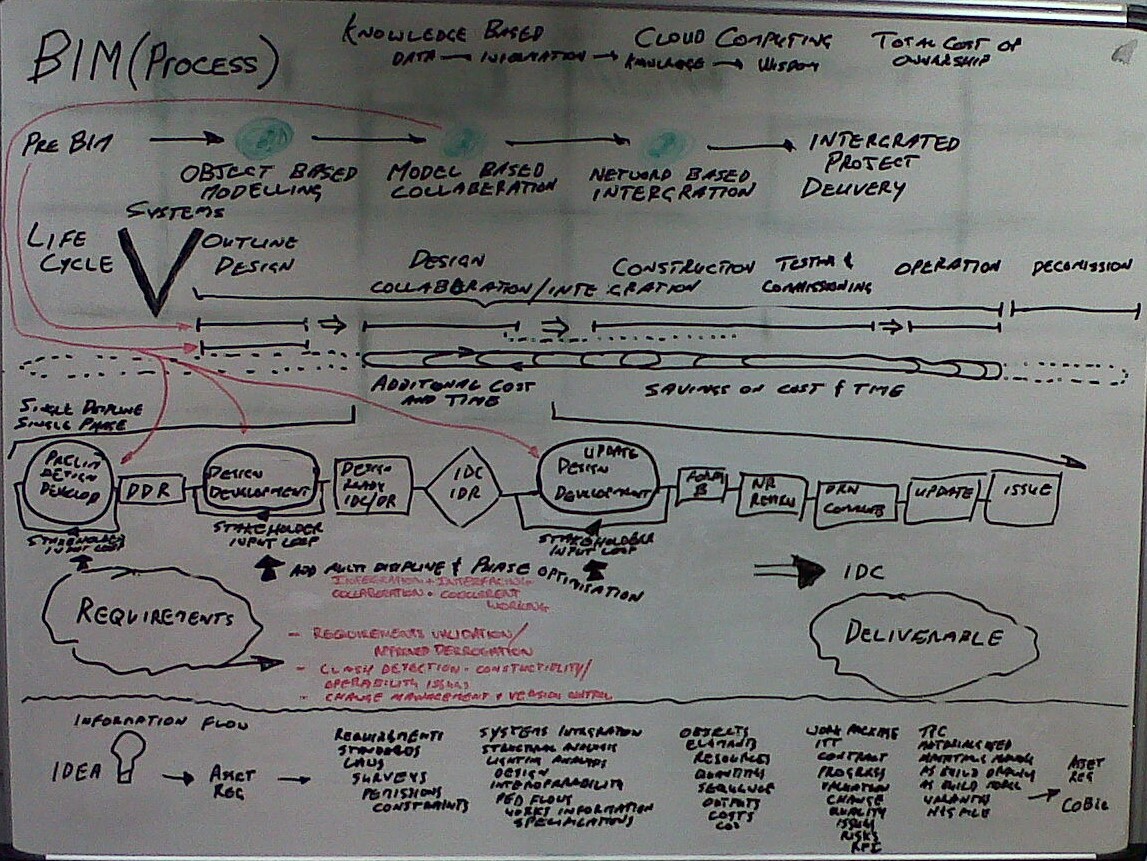 BIM (PROCESS)
KNOWLEDGE BASED
CLOUD COMPUTING
TOTAL COST OF
OWNERSHIP
DATA → INFORMATION → KNOWLEDGE → WISDOM
PRE BIM
OBJECT BASED
MODELLING
MODEL BASED
COLLABERATION
NETWORD BASED
INTERGRATION
INTERGRATED
PROJECT
DELIVERY
SYSTEMS
LIFE
CYCLE
OUTLINE
DESIGN
DESIGN
COLLABERATION/INTEGRATION
CONSTRUCTION
TESTING &
COMMISSIONING
OPERATION
DECOMISSION
ADDITIONAL COST
AND TIME
SAVINGS ON COST & TIME
SINGLE DISIPLINE
SINGLE PHASE
PRELIM
DESIGN
DEVELOP
DDR
DESIGN
DEVELOPMENT
DESIGN
READY
IDC/DR
IDC
IDR
UPDATE
DESIGN
DEVELOPMENT
FORM
B
NR
REVIEW
DRN
COMMENTS
UPDATE
ISSUE
STAKEHOLDER
INPUT LOOP
STAKEHOLDER
INPUT LOOP
STAKEHOLDER
INPUT LOOP
ADD MULTI DISIPLINE & PHASE OPTIMISATION
INTEGRATION + INTERFACING
COLLABORATION + CONCURRENT
WORKING
IDC
REQUIREMENTS
DELIVERABLE
- REQUIREMENTS VALIDATION/
DERROGATION
- CLASH DETECTION - CONSTRUCTIBILITY/
OPERABILITY ISSUES
- CHANGE MANAGEMENT + VERSION CONTROL
INFORMATION FLOW
IDEA
ASSET
REG
REQUIREMENTS
STANDARDS
LAWS
SURVEYS
PERMISSIONS
CONSTRAINTS
SYSTEMS INTEGRATION
STRUCTURAL ANALYSIS
LIGHTING ANALYSIS
DESIGN
INTEROPERABILITY
PED FLOWS
WORKS INFORMATION
SPECIFICATIONS
OBJECTS
ELEMENTS
RESOURCES
QUANTITIES
SEQUENCE
OUTPUTS
COSTS
CO2
WORK PACKAGE
ITT
CONTRACT
PROGRESS
VALUATION
CHANGE
QUALITY
ISSUES
RISKS
RFI
AS BUILD DRAWING
AS BUILD MODEL
H+S FILE
ASET
REG
COBIE